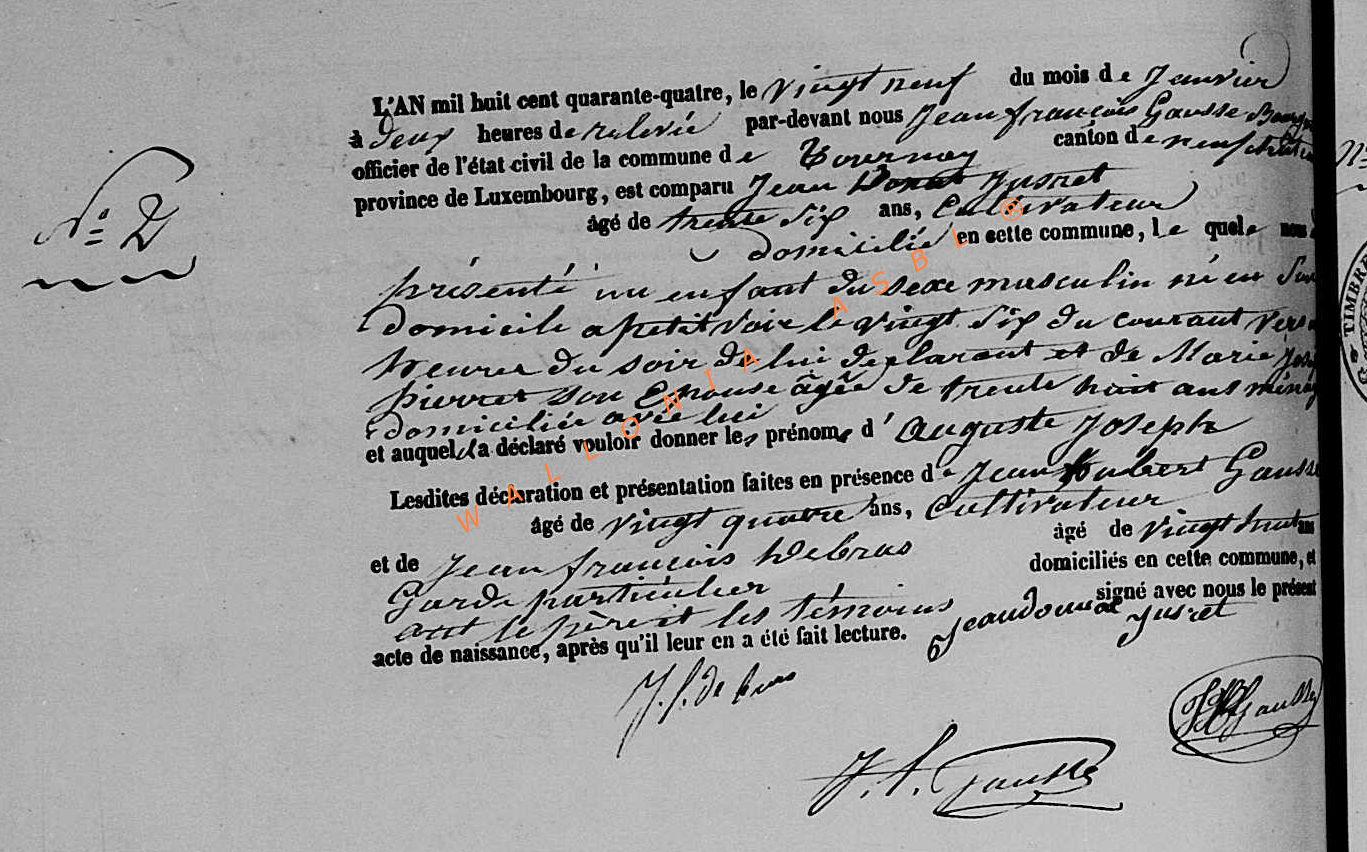 L'AN mil huit cent quarante-quatre, le vingt neuf du mois de Janvier
à deux heures de relevée par-devant nous Jean françois Gausse
officier de l'état civil de la commune de Tournay canton de neufchateau
province de Luxembourg, est comparu Jean Donat Jusret
âgé de trente Six ans, Cultivateur
domicilié en cette commune, le quel nous a
N° 2
présenté un enfant du sexe masculin né en Son
domicile a petit voir le vingt Six du courant vers
heures du soir de lui déclarant et de Marie
pierret son Epouse âgée de trente huit ans
domiciliée avec lui
et auquel il a déclaré vouloir donner les prénoms d' Auguste Joseph
Lesdites déclaration et présentation faites en présence de Jean hubert Gausse
âgé de vingt quatre ans, Cultivateur
et de Jean françois Debras âgé de vingt huit ans
Garde particulier domiciliés en cette commune, et
ont le père et les témoins signé avec nous le présent
acte de naissance, après qu'il leur en a été fait lecture. Jean donnat Jusret
J. f. de bras
JH Gausse
J. f. Gausse
TIMBRE
WALLONIA ASBL ©